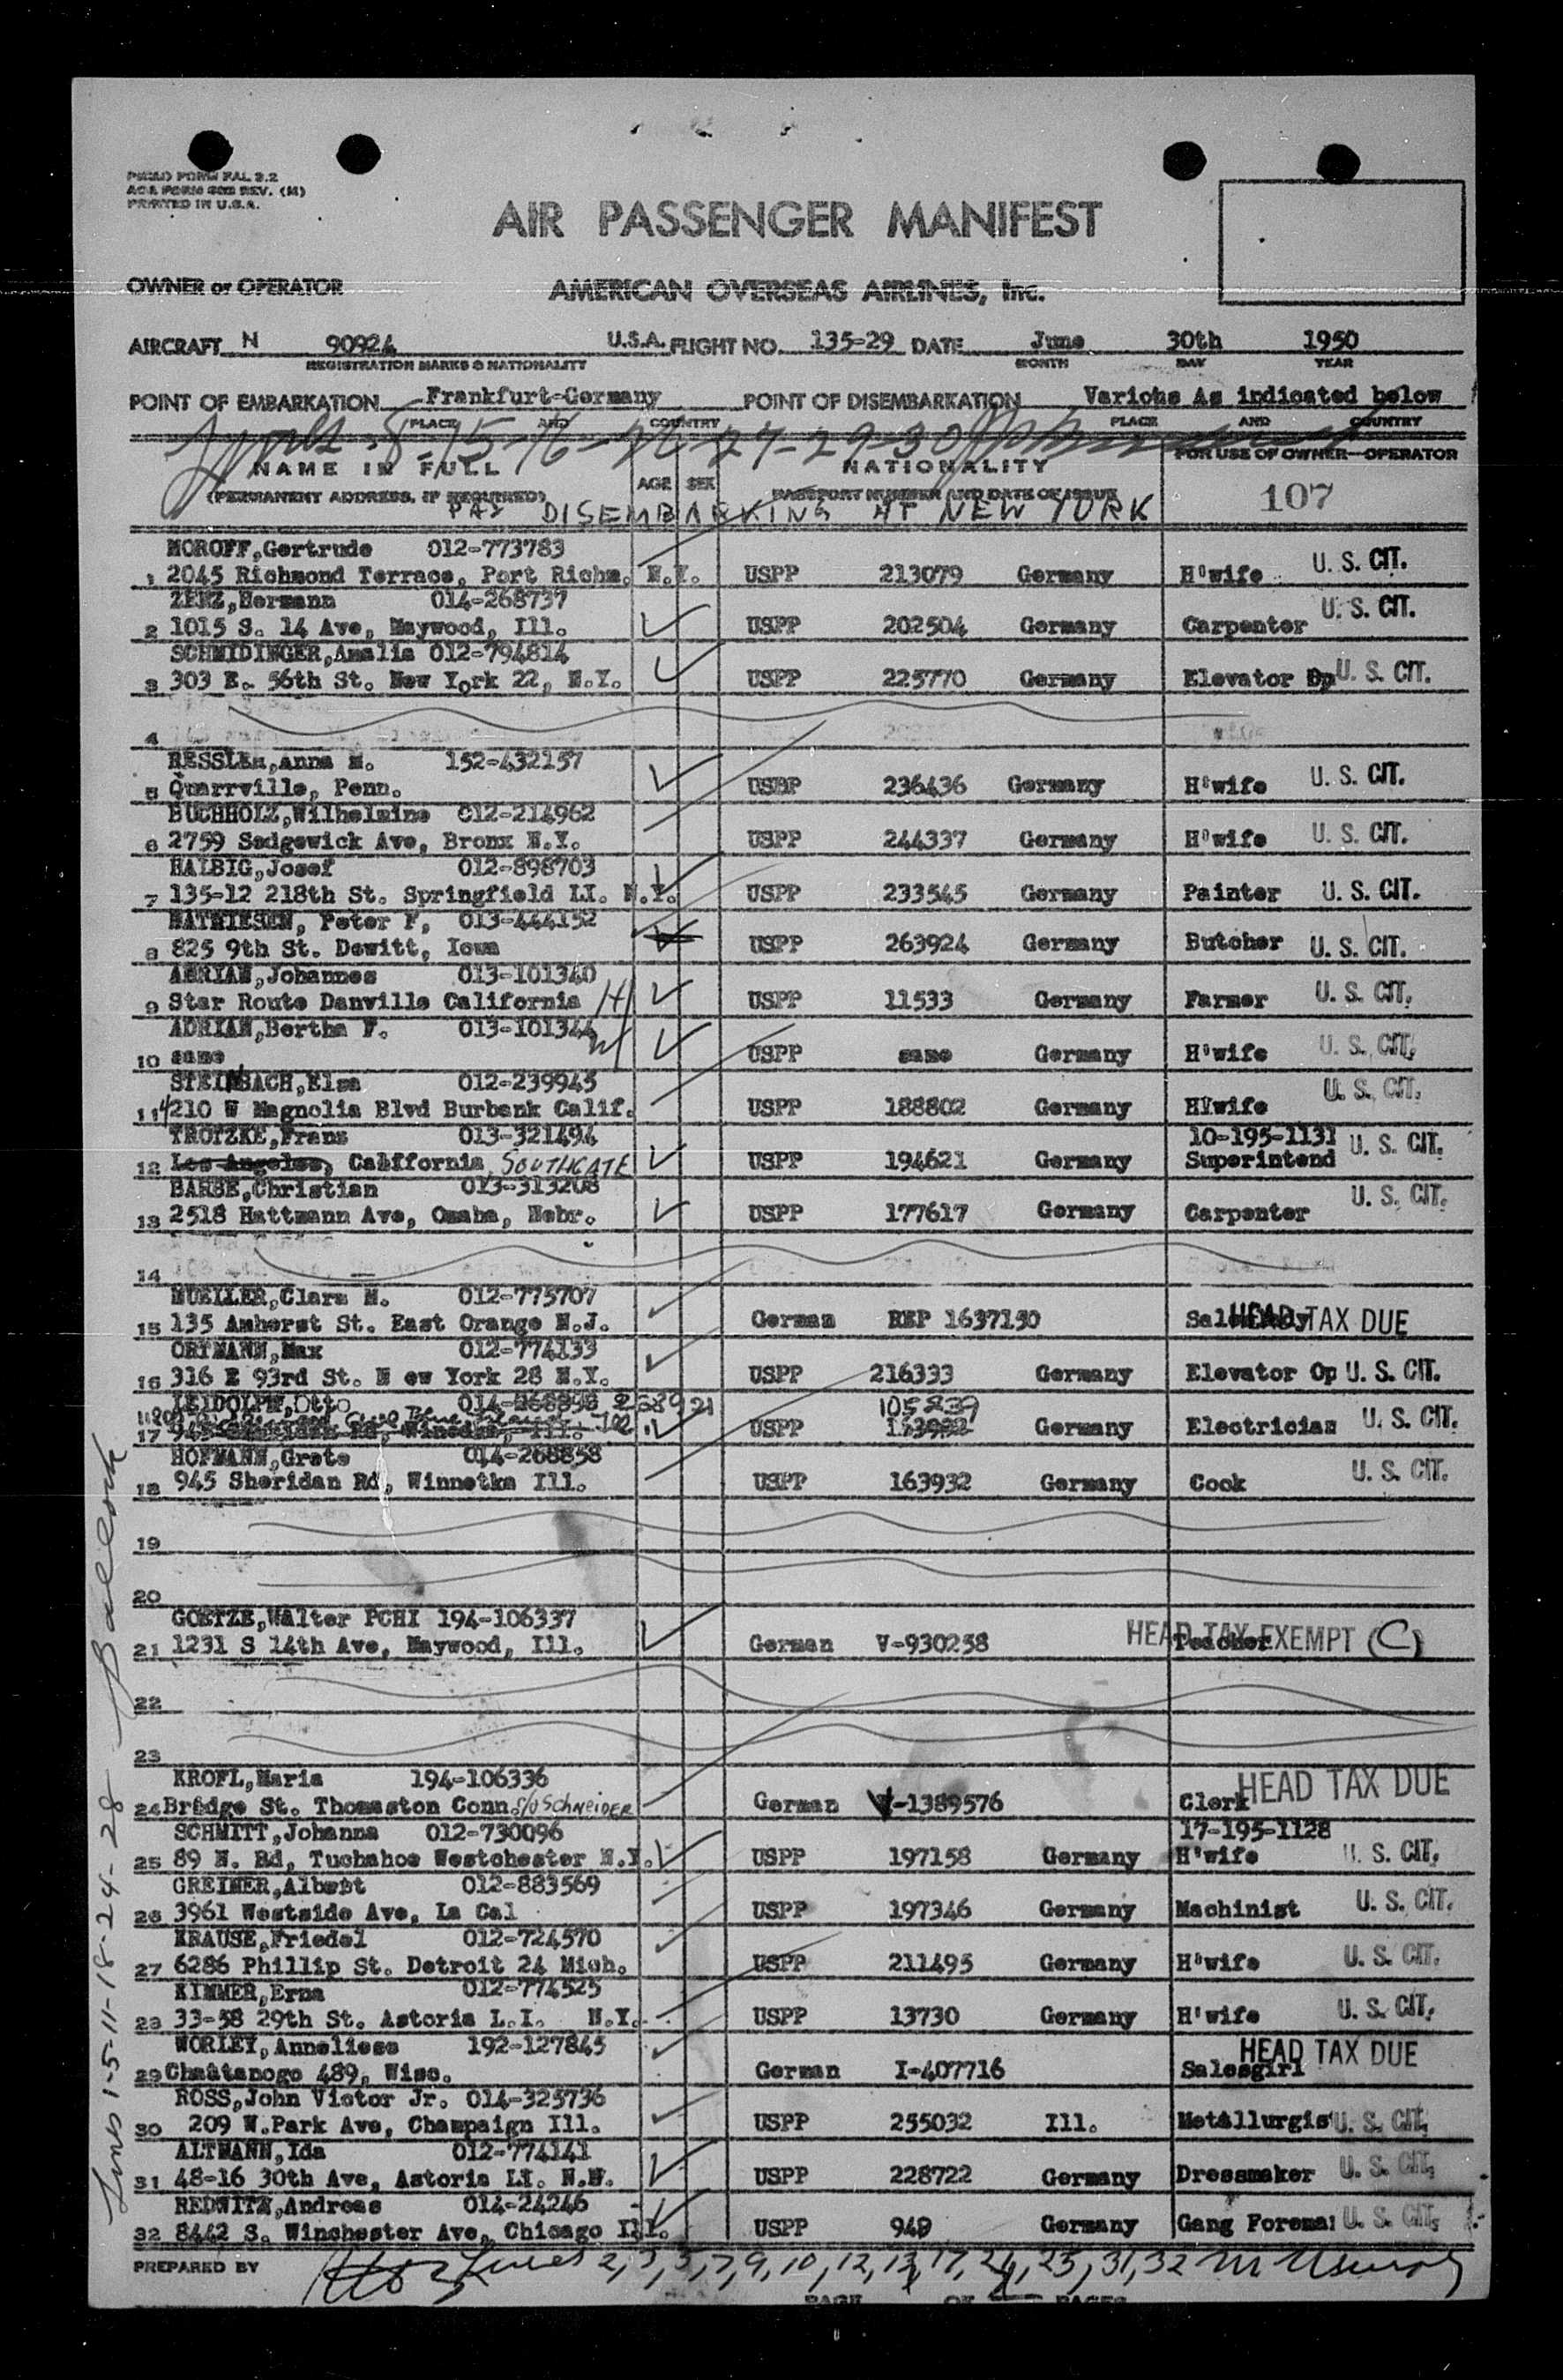 PICAO FORM FAL 3.2
AOA FORM 403 REV. (M)
PRINTED IN U.S.A.
AIR PASSENGER MANIFEST
OWNER or OPERATOR AMERICAN OVERSEAS AIRLINES, Inc.
AIRCRAFT N 90924 U.S.A. FLIGHT NO. 135-29 DATE June 30th 1950
REGISTRATION MARKS & NATIONALITY MONTH DAY YEAR
POINT OF EMBARKATION Frankfurt-Germany POINT OF DISEMBARKATION Variohs As indicated below
PLACE AND COUNTRY PLACE AND COUNTRY
NAME IN FULL AGE SEX NATIONALITY FOR USE OF OWNER—OPERATOR
(PERMANENT ADDRESS, IF REQUIRED) PASSPORT NUMBER AND DATE OF ISSUE 107
PAX DISEMBARKING AT NEW YORK
MOROFF,Gertrude 012-773783
1 2045 Richmond Terrace, Port Richm. N.Y. USPP 213079 Germany H'wife U. S. CIT.
ZERZ,Hermann 014-268737
2 1015 S. 14 Ave, Maywood, Ill. USPP 202504 Germany Carpenter U. S. CIT.
SCHMIDINGER,Amalia 012-794814
3 303 E. 56th St. New York 22, N.Y. USPP 225770 Germany Elevator Op U. S. CIT.
4
RESSLER,Anna M. 152-432157
5 Quarrville, Penn. USPP 236436 Germany H'wife U. S. CIT.
BUCHHOLZ,Wilhelmine 012-214962
6 2759 Sedgewick Ave, Bronx N.Y. USPP 244337 Germany H'wife U. S. CIT.
HALBIG,Josef 012-898703
7 135-12 218th St. Springfield LI. N.Y. USPP 233545 Germany Painter U. S. CIT.
MATHIESEN, Peter F, 013-444152
8 825 9th St. Dewitt, Iowa USPP 263924 Germany Butcher U. S. CIT.
ADRIAN,Johannes 013-101340
9 Star Route Danville California H USPP 11533 Germany Farmer U. S. CIT.
ADRIAN,Bertha F. 013-101344
10 same W USPP same Germany H'wife U. S. CIT.
STEINBACH,Elsa 012-239945
11 4210 W Magnolia Blvd Burbank Calif. USPP 188802 Germany H'wife U. S. CIT.
TROTZKE,Frans 013-321494 10-195-1131
12 Los Angeles, California SOUTHGATE USPP 194621 Germany Superintend U. S. CIT.
BARSE,Christian 013-313208
13 2518 Hattmann Ave, Omaha, Nebr. USPP 177617 Germany Carpenter U. S. CIT.
14
MUELLER,Clara M. 012-775707
15 135 Amherst St. East Orange N.J. German REP 1637150 Saleslady HEAD TAX DUE
ORTMANN,Max 012-774133
16 316 E 93rd St. N ew York 28 N.Y. USPP 216333 Germany Elevator Op U. S. CIT.
LEIDOLPH,Otto 014-268898 268921 105239
17 945 Sheridan Rd, Winnetka, Ill. USPP 163932 Germany Electrician U. S. CIT.
HOFMANN,Grete 014-268858
18 945 Sheridan Rd, Winnetka Ill. USPP 163932 Germany Cook U. S. CIT.
19
20
GOETZE,Walter PCHI 194-106337
21 1231 S 14th Ave, Maywood, Ill. German V-930258 Teacher HEAD TAX EXEMPT (C)
22
23
KROFL,Maria 194-106336
24 Bridge St. Thomaston Conn. c/o SCHNEIDER German V-1389576 Clerk HEAD TAX DUE
SCHMITT,Johanna 012-730096 17-195-1128
25 89 N. Rd, Tuchahoe Westchester N.Y. USPP 197158 Germany H'wife U. S. CIT.
GREINER,Albert 012-883569
26 3961 Westside Ave, La Cal USPP 197346 Germany Machinist U. S. CIT.
KRAUSE,Friedel 012-724570
27 6286 Phillip St. Detroit 24 Mich. USPP 211495 Germany H'wife U. S. CIT.
KIMMER,Erna 012-774525
28 33-58 29th St. Astoria L.I. N.Y. USPP 13730 Germany H'wife U. S. CIT.
WORLEY,Anneliese 192-127845
29 Chaatanogo 489, Wisc. German I-407716 Salesgirl HEAD TAX DUE
ROSS,John Victor Jr. 014-325736
30 209 W.Park Ave, Champaign Ill. USPP 255032 Ill. Metallurgis U. S. CIT.
ALTMANN,Ida 012-774141
31 48-16 30th Ave, Astoria LI. N.W. USPP 228722 Germany Dressmaker U. S. CIT.
REDWITZ,Andreas 014-24246
32 8442 S. Winchester Ave, Chicago Ill. USPP 949 Germany Gang Foreman U. S. CIT.
PREPARED BY Lines 2,3,5,7,9,10,12,13,17,21,25,31,32
PAGE OF PAGES
Lines 1-5-11-18-24-28